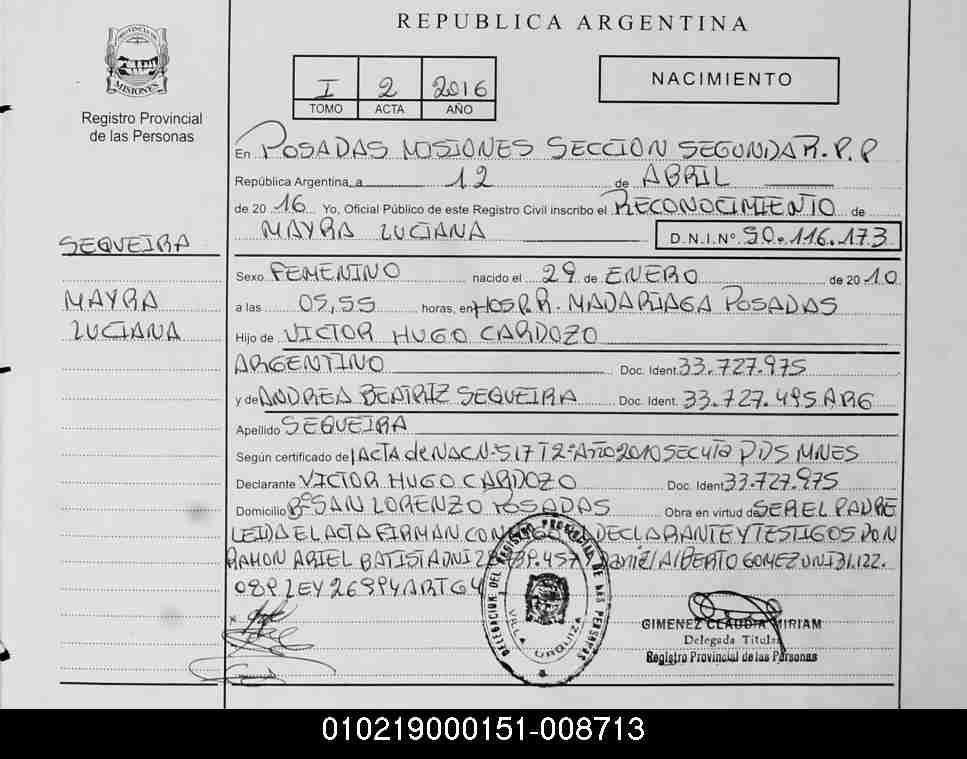 REPUBLICA ARGENTINA
PROVINCIA DE
MISIONES
Registro Provincial
de las Personas
I 2 2016
TOMO ACTA AÑO
NACIMIENTO
En POSADAS MISIONES SECCION SEGUNDA R.P.P
República Argentina, a 12 de ABRIL
de 2016 Yo, Oficial Público de este Registro Civil inscribo el RECONOCIMIENTO de
MAYRA LUCIANA D.N.I.Nº 50.116.173
SEQUEIRA
MAYRA
LUCIANA
Sexo FEMENINO nacido el 29 de ENERO de 2010
a las 05,55 horas, en HOSP.R. MADARIAGA POSADAS
Hijo de VICTOR HUGO CARDOZO
ARGENTINO Doc. Ident. 33.727.975
y de ANDREA BEATRIZ SEQUEIRA Doc. Ident. 33.727.495 ARG
Apellido SEQUEIRA
Según certificado de ACTA de NAC N° 517 T 2° Año 2010 SEC 4ta PDS MNES
Declarante VICTOR HUGO CARDOZO Doc. Ident 33.727.975
Domicilio Bº SAN LORENZO POSADAS Obra en virtud de SER EL PADRE
LEIDA EL ACTA FIRMAN DECLARANTE Y TESTIGOS DON
RAMON ARIEL BATISTA DNI ALBERTO GOMEZ DNI 31.122.
089 LEY 26994 ART 64
DELEGACION DEL REGISTRO PROVINCIAL DE LAS PERSONAS
VILLA URQUIZA
GIMENEZ CLAUDIA MIRIAM
Delegada Titular
Registro Provincial de las Personas
010219000151-008713